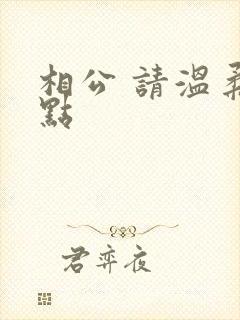 相公 請溫柔
點
君弈夜